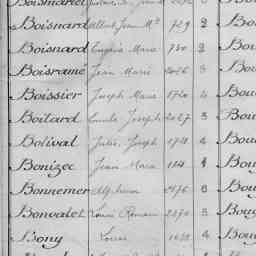 Boisnard Albert Jean Mie 729 2 Bou
Boisnard Eugène Marie 730 2 Bou
Boisramé Jean Marie 3 Bou
Boissier Joseph Marie 1760 4 Bou
Boitard Emile Joseph 2057 3 Bou
Bolival Julie Joseph 4 Bou
Bonizec Jean Marie 1 Boug
Bonnemer Alphonse 2976 6 Boug
Bonvalet Louis Romain 2370 5 Boug
Bony Louis 4 Boug